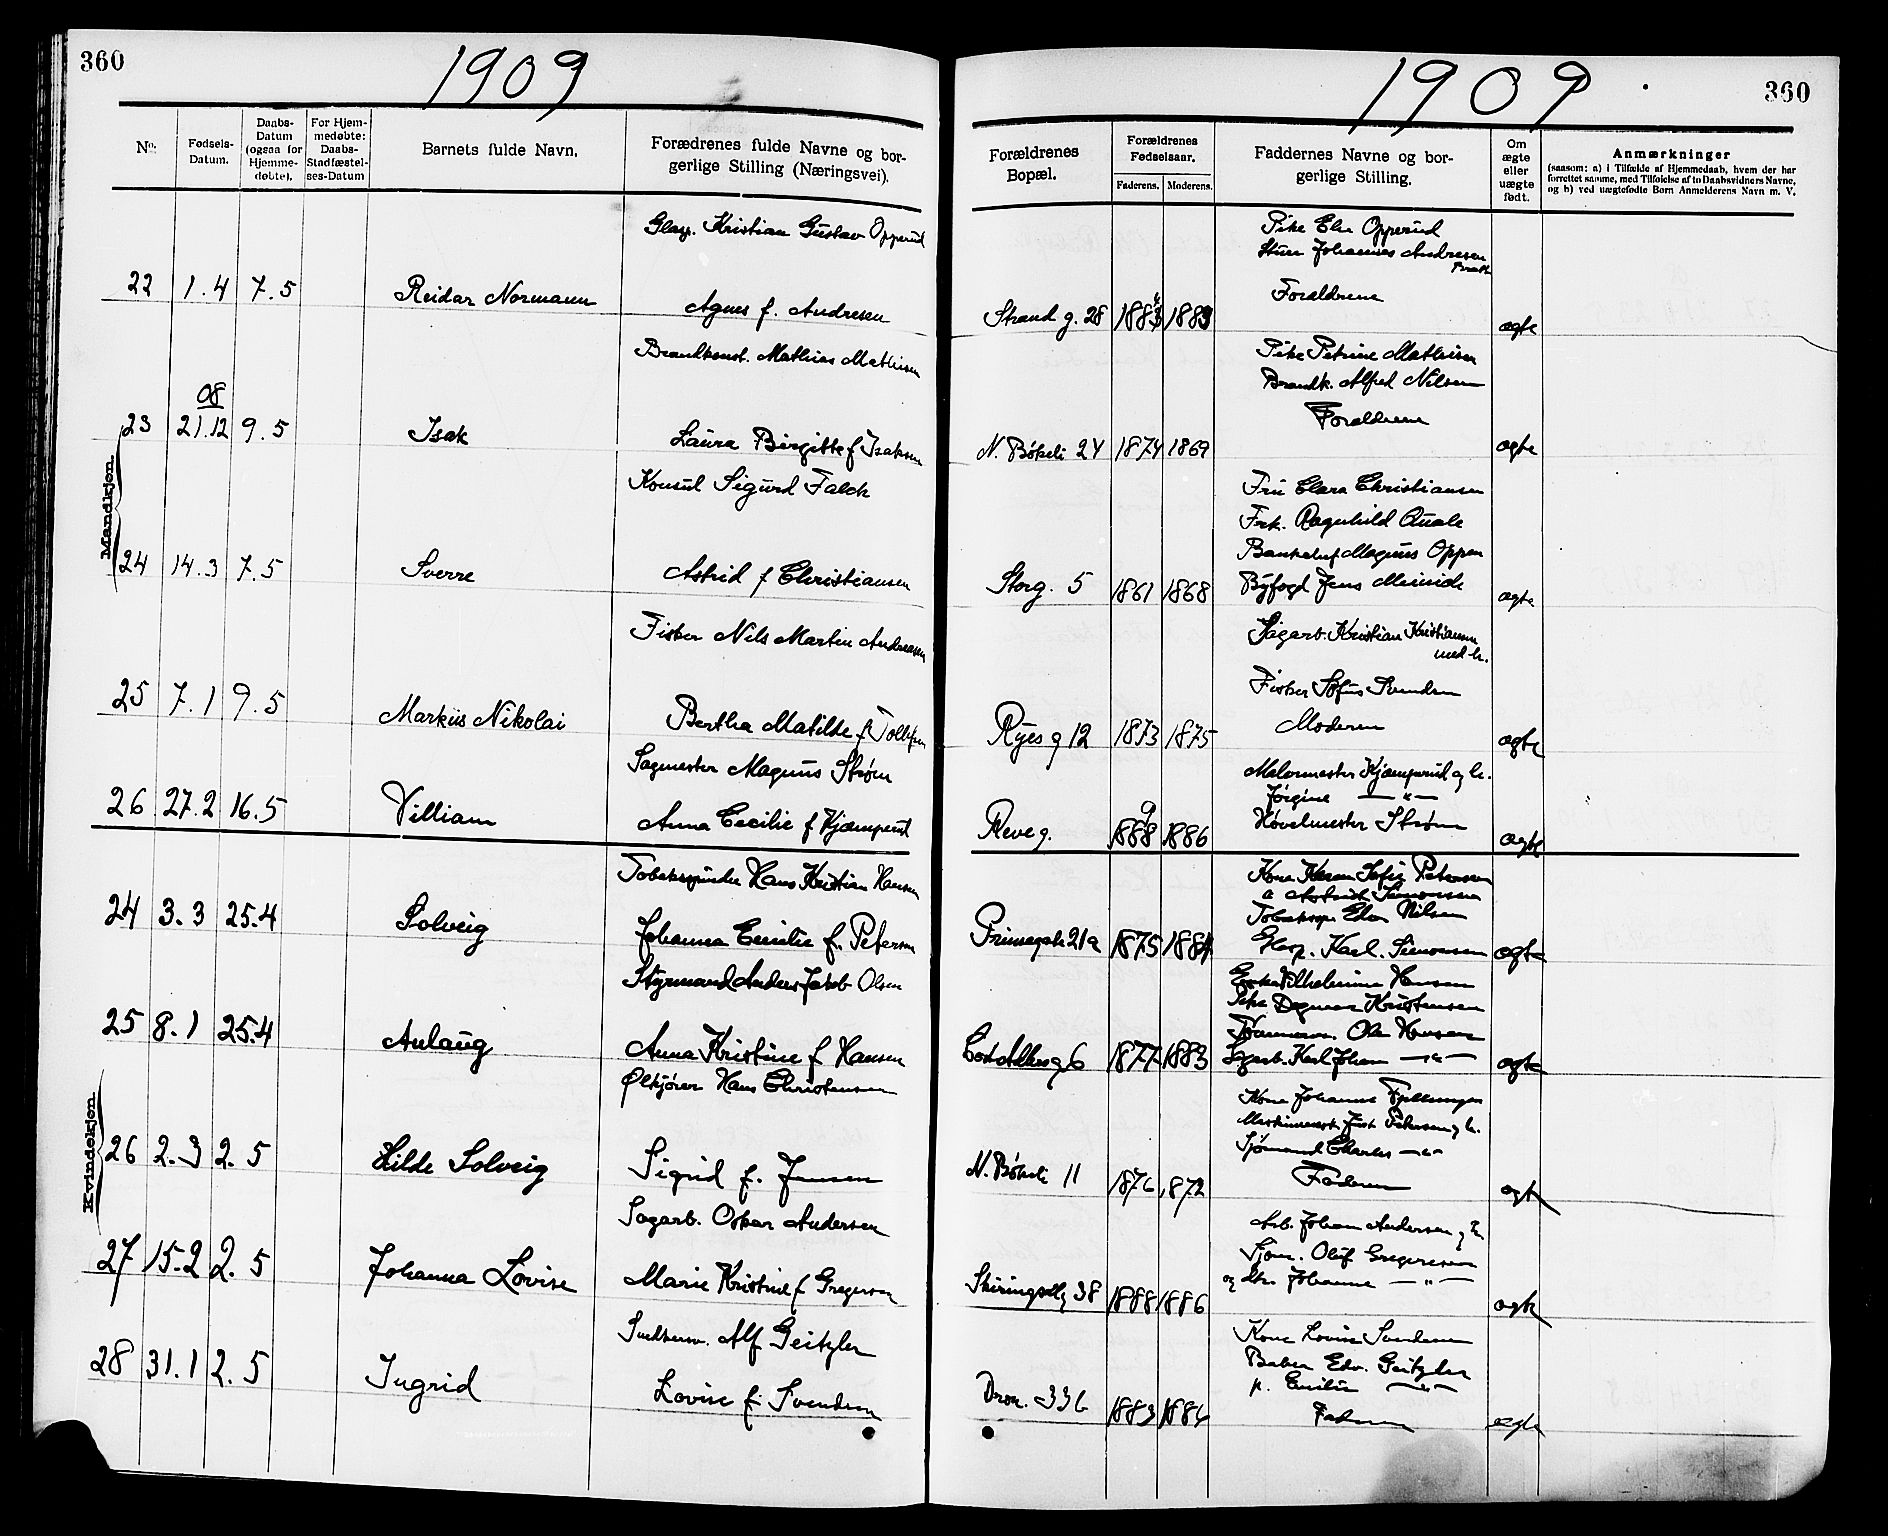 360
1909
No.
Fødsels-Datum.
Daabs-Datum (ogsaa for Hjemme-døbte).
For Hjem-medøbte: Daabs-Stadfæstel-ses-Datum
Barnets fulde Navn.
Forældrenes fulde Navne og bor-gerlige Stilling (Næringsvei).
Kristian Gustav Opperud
22 1.4 7.5 Reidar Normann Agnes f. Andresen
Mathias Mathisen
08
23 21.12 9.5 Isak Laura Birgitte f Isaksen
Mandkjøn.
Konsul Sigurd Falck
24 14.3 7.5 Sverre Astrid f Christiansen
Fisker Nils Martin Andreasen
25 7.1 9.5 Markus Nikolai Bertha Matilde f Tollefsen
Sagmester Magnus Strøm
26 27.2 16.5 Villiam Anna Cecilie f Kjæmperud
Hans Kristian Hansen
24 3.3 25.4 Solveig Johanna Emilie f. Petersen
Styrmand Anders Jakob Olsen
25 8.1 25.4 Aulaug Anna Kristine f Hansen
Kvindekjøn
Ølkjører Hans Christensen
26 2.3 2.5 Hilde Solveig Sigrid f. Jensen
Sagarb. Oskar Andersen
27 15.2 2.5 Johanna Lovise Marie Kristine f Gregersen
Alf Geitzler
28 31.1 2.5 Ingrid Lovise f. Svendsen
1909
360
Forældrenes Bopæl.
Forældrenes Fødselsaar.
Faderens. Moderens.
Faddernes Navne og bor-gerlige Stilling.
Om ægte eller uægte født.
Anmærkninger
(saasom: a) i Tilfælde af Hjemmedaab, hvem der har forrettet samme, med Tilføielse af to Daabsvidners Navne, og b) ved uægtefødte Børn Anmelderens Navn m. V.
Pike Opperud
Johannes Andresen
Forældrene
Strand g. 28 1883 1883 ægte
Pike Petrine Mathisen
Brandk. Alfred Nilsen
Forældrene
N. Bøkeli 24 1874 1869 ægte
Fru Clara Christiansen
Frk. Ragnhild Quale
Magnus Oppen
Storg. 5 1861 1868 Byfogd Jens Meinich ægte
Sagarb. Kristian Kristiansen
med h.
Fisker Sofus Svendsen
Moderen
Ryes g 12 1873 1875 ægte
Malermester Kjæmperud og h.
Jørgine — " —
9
Reveg. 1888 1886 Høvelmester Strøm ægte
Kone Karen Sofie Petersen
Astrid Simonsen
Nilsen
Prinsegate 21a 1875 1884 Karl Simonsen ægte
Vilhelmine Hansen
Pike Dagmar Kristensen
Ole Hansen
1877 1883 Sagarb. Karl Johan — " — ægte
Kone Johanne
Petersen og h.
Sjømand Charles — " —
Faderen
N. Bøkeli 11 1876 1872 ægte
Arb. Johan Andersen og h
Sjøm. Oluf Gregersen
Johanne — " —
Skiringsalg 38 1888 1886 ægte
Kone Lovise Svendsen
Edv. Geitzler
p. Emilie — " —
Faderen
Dron. 33b 1883 1886 ægte